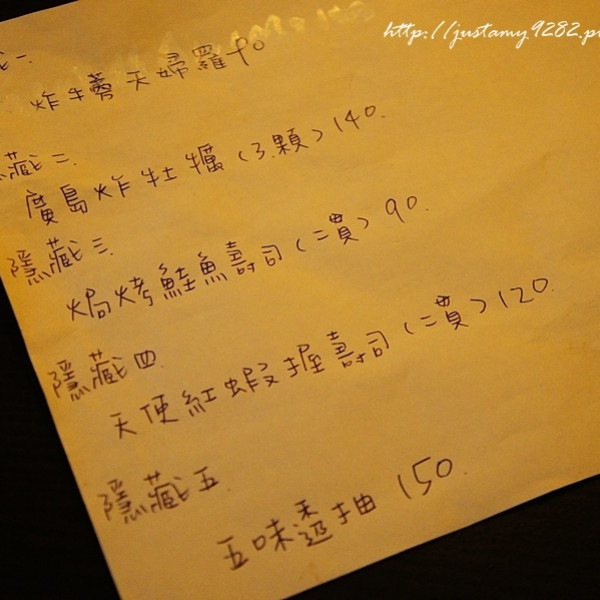 http://justamy9282.pi
藏一.
炸牛蒡天婦羅 90
隱藏二.
廣島炸牡蠣(3顆)140.
隱藏三.
焗烤鮭魚壽司(二貫)90.
隱藏四.
天使紅蝦握壽司(二貫)120.
隱藏五.
五味透抽 150.